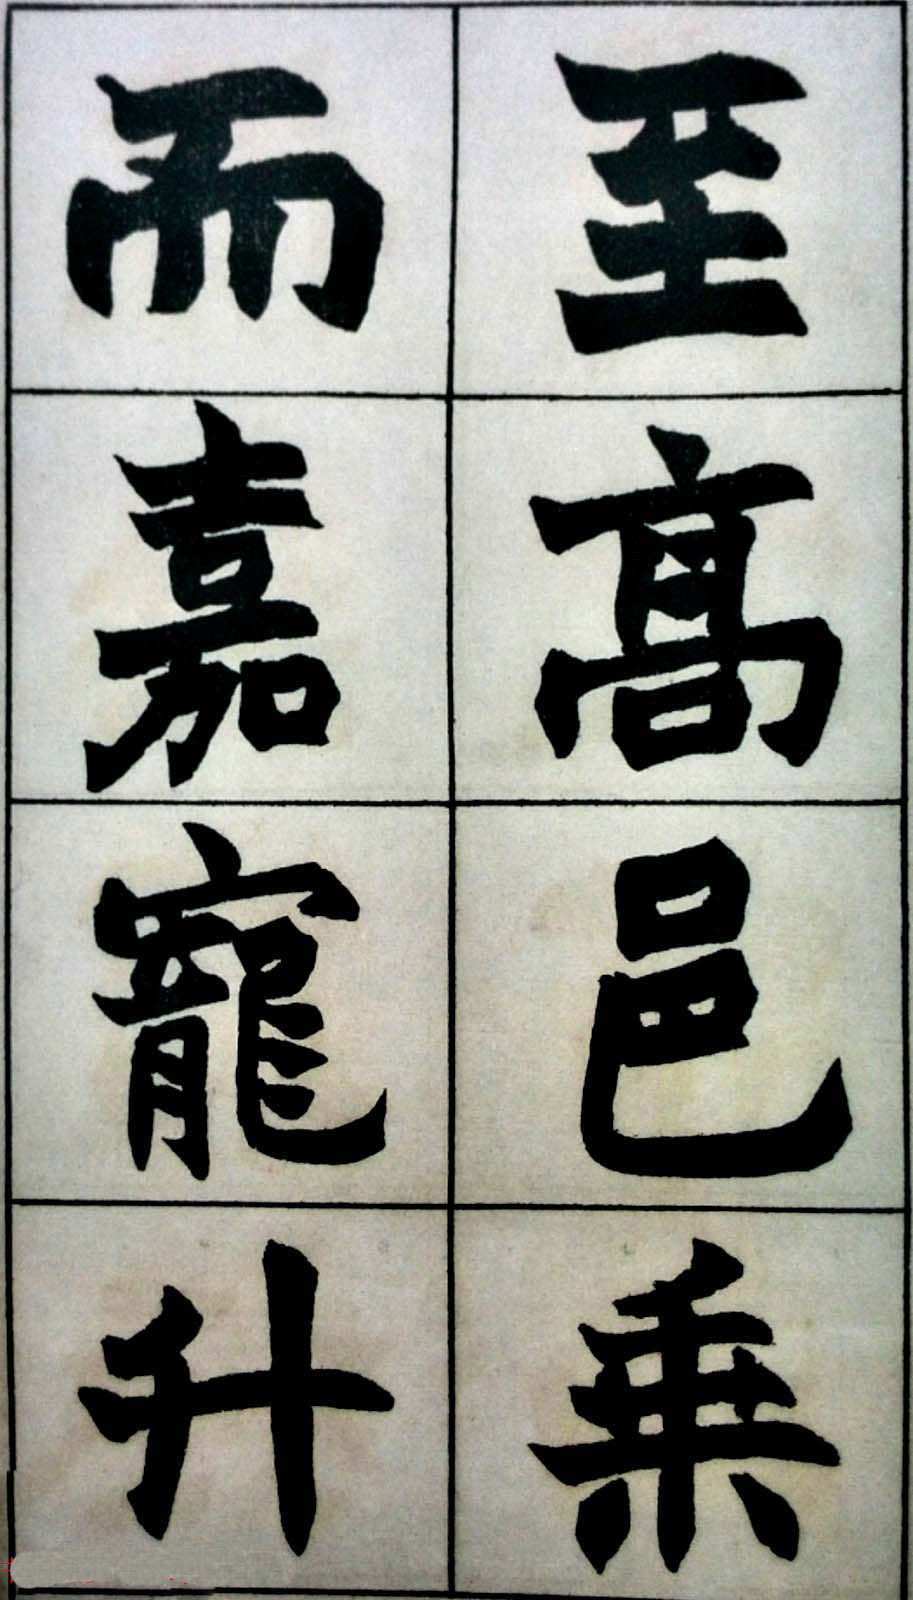 至高邑乗
而嘉寵升